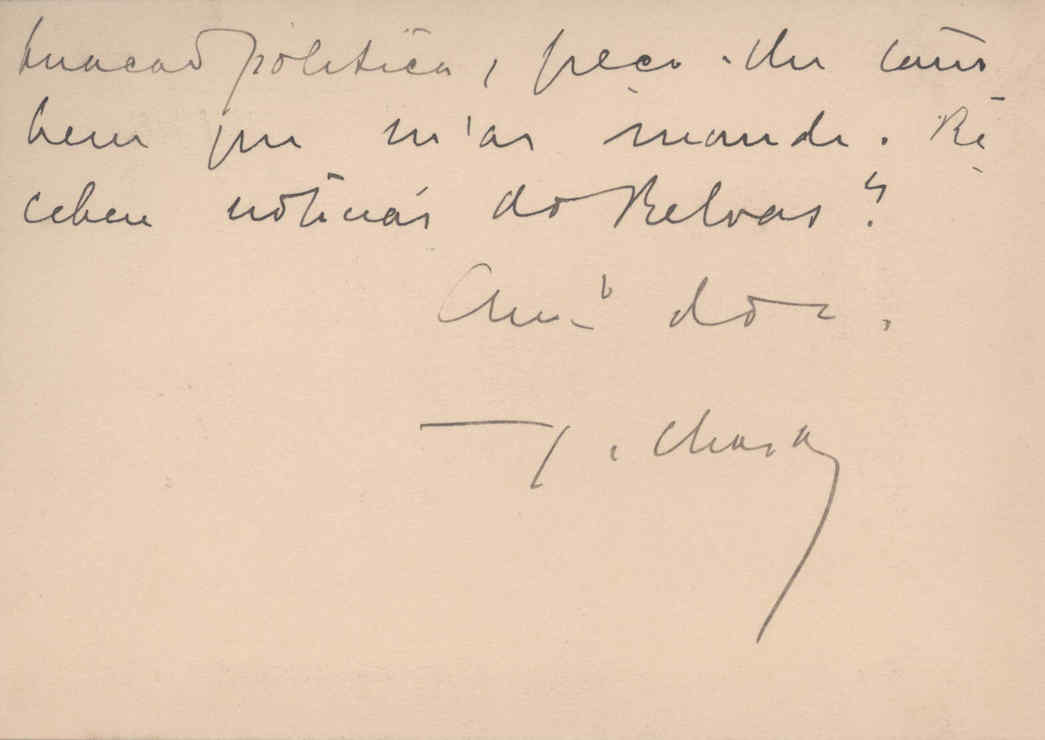 tuação política, peço-lhe tam
bem que m'as mande. Re
cebeu noticias do Relvas?
Amº do c.
J. Chagas